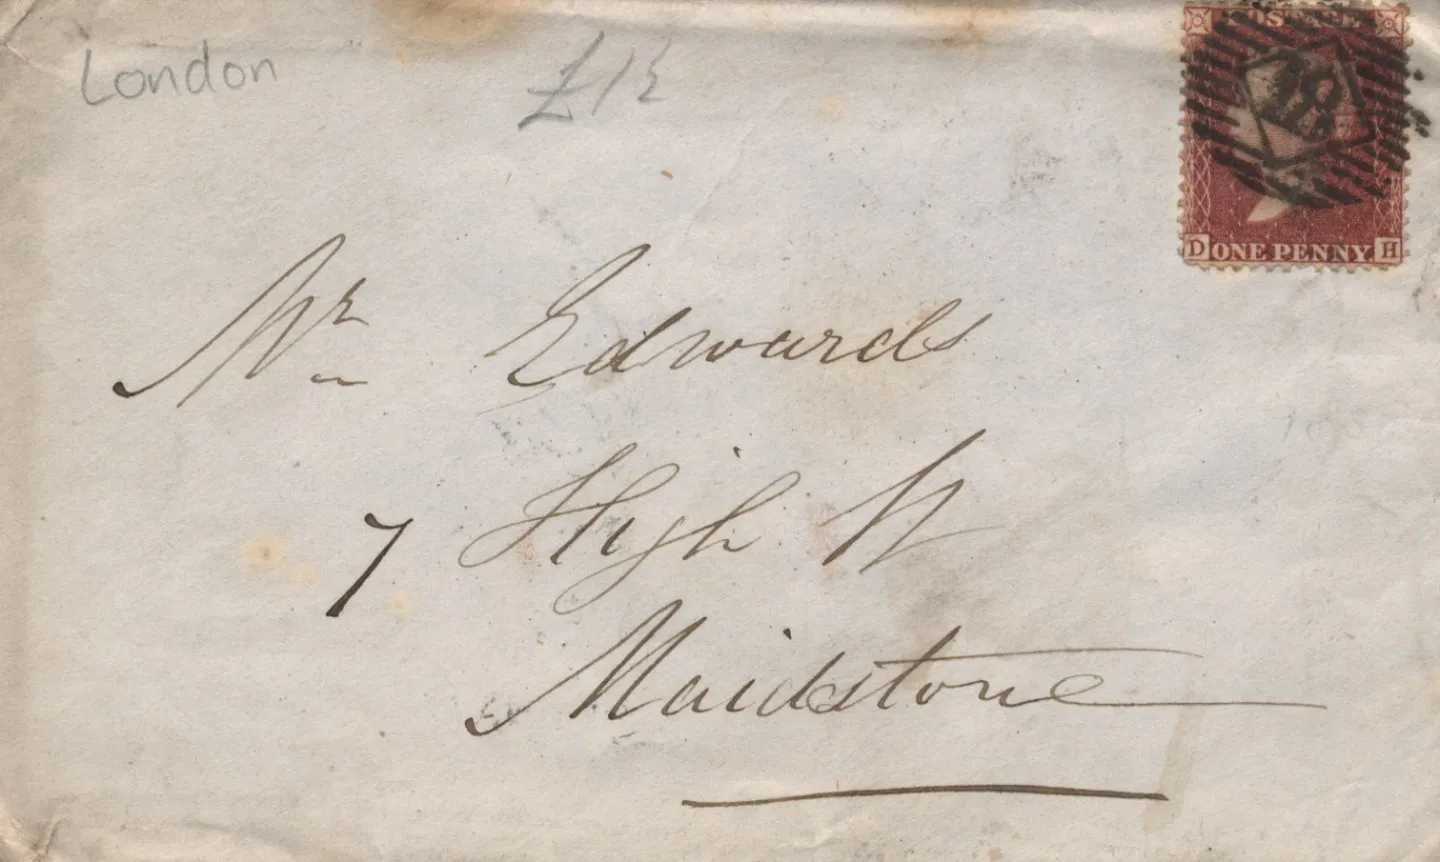 London
POSTAGE
18
D ONE PENNY H
Mr Edwards
7 High St
Maidstone